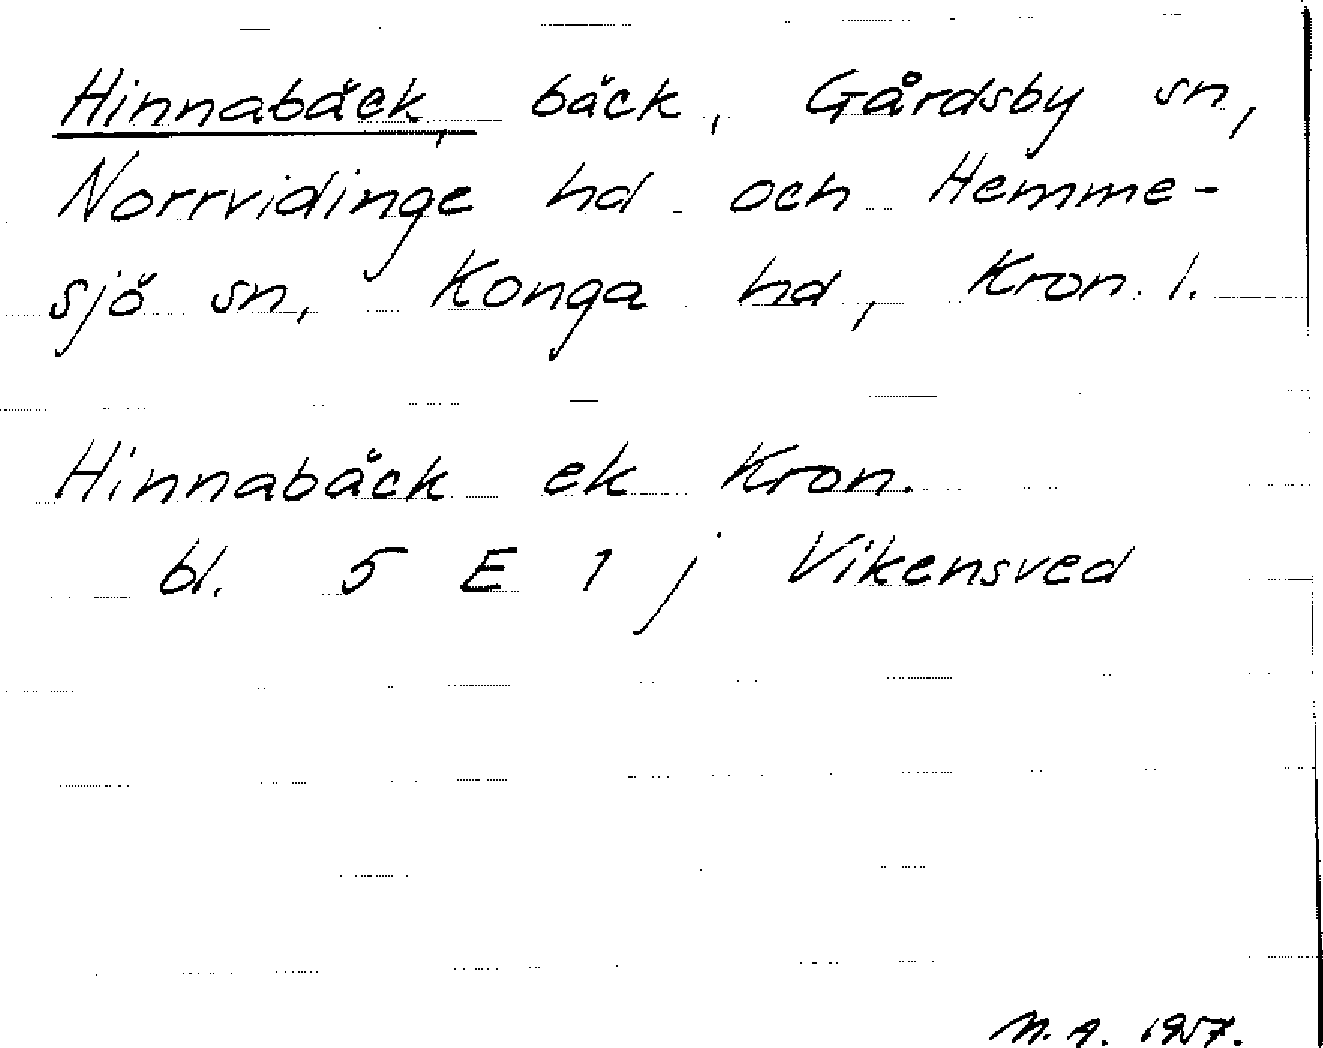 Hinnabäck, bäck, Gårdsby sn,
Norrvidinge hd och Hemme-
sjö sn, Konga hd, Kron. l.
Hinnabäck ek Kron.
bl. 5 E 1 j Vikensved
M. A. 1957.